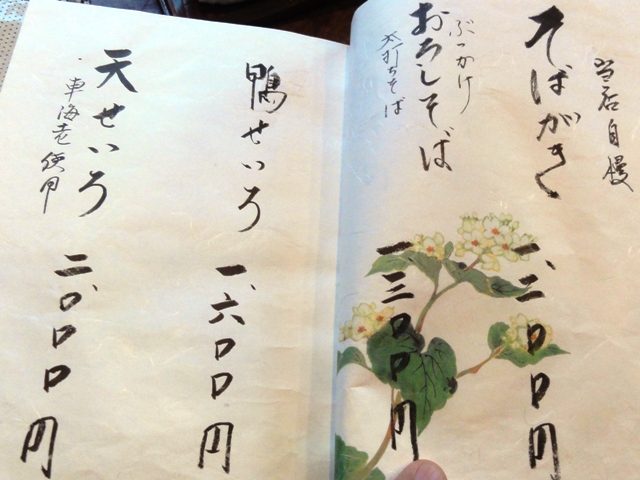 当店自慢
そばがき
一、二〇〇円
ぶっかけ
おろしそば
太打ちそば
一、三〇〇円
鴨せいろ
一、六〇〇円
天せいろ
車海老使用
二、〇〇〇円